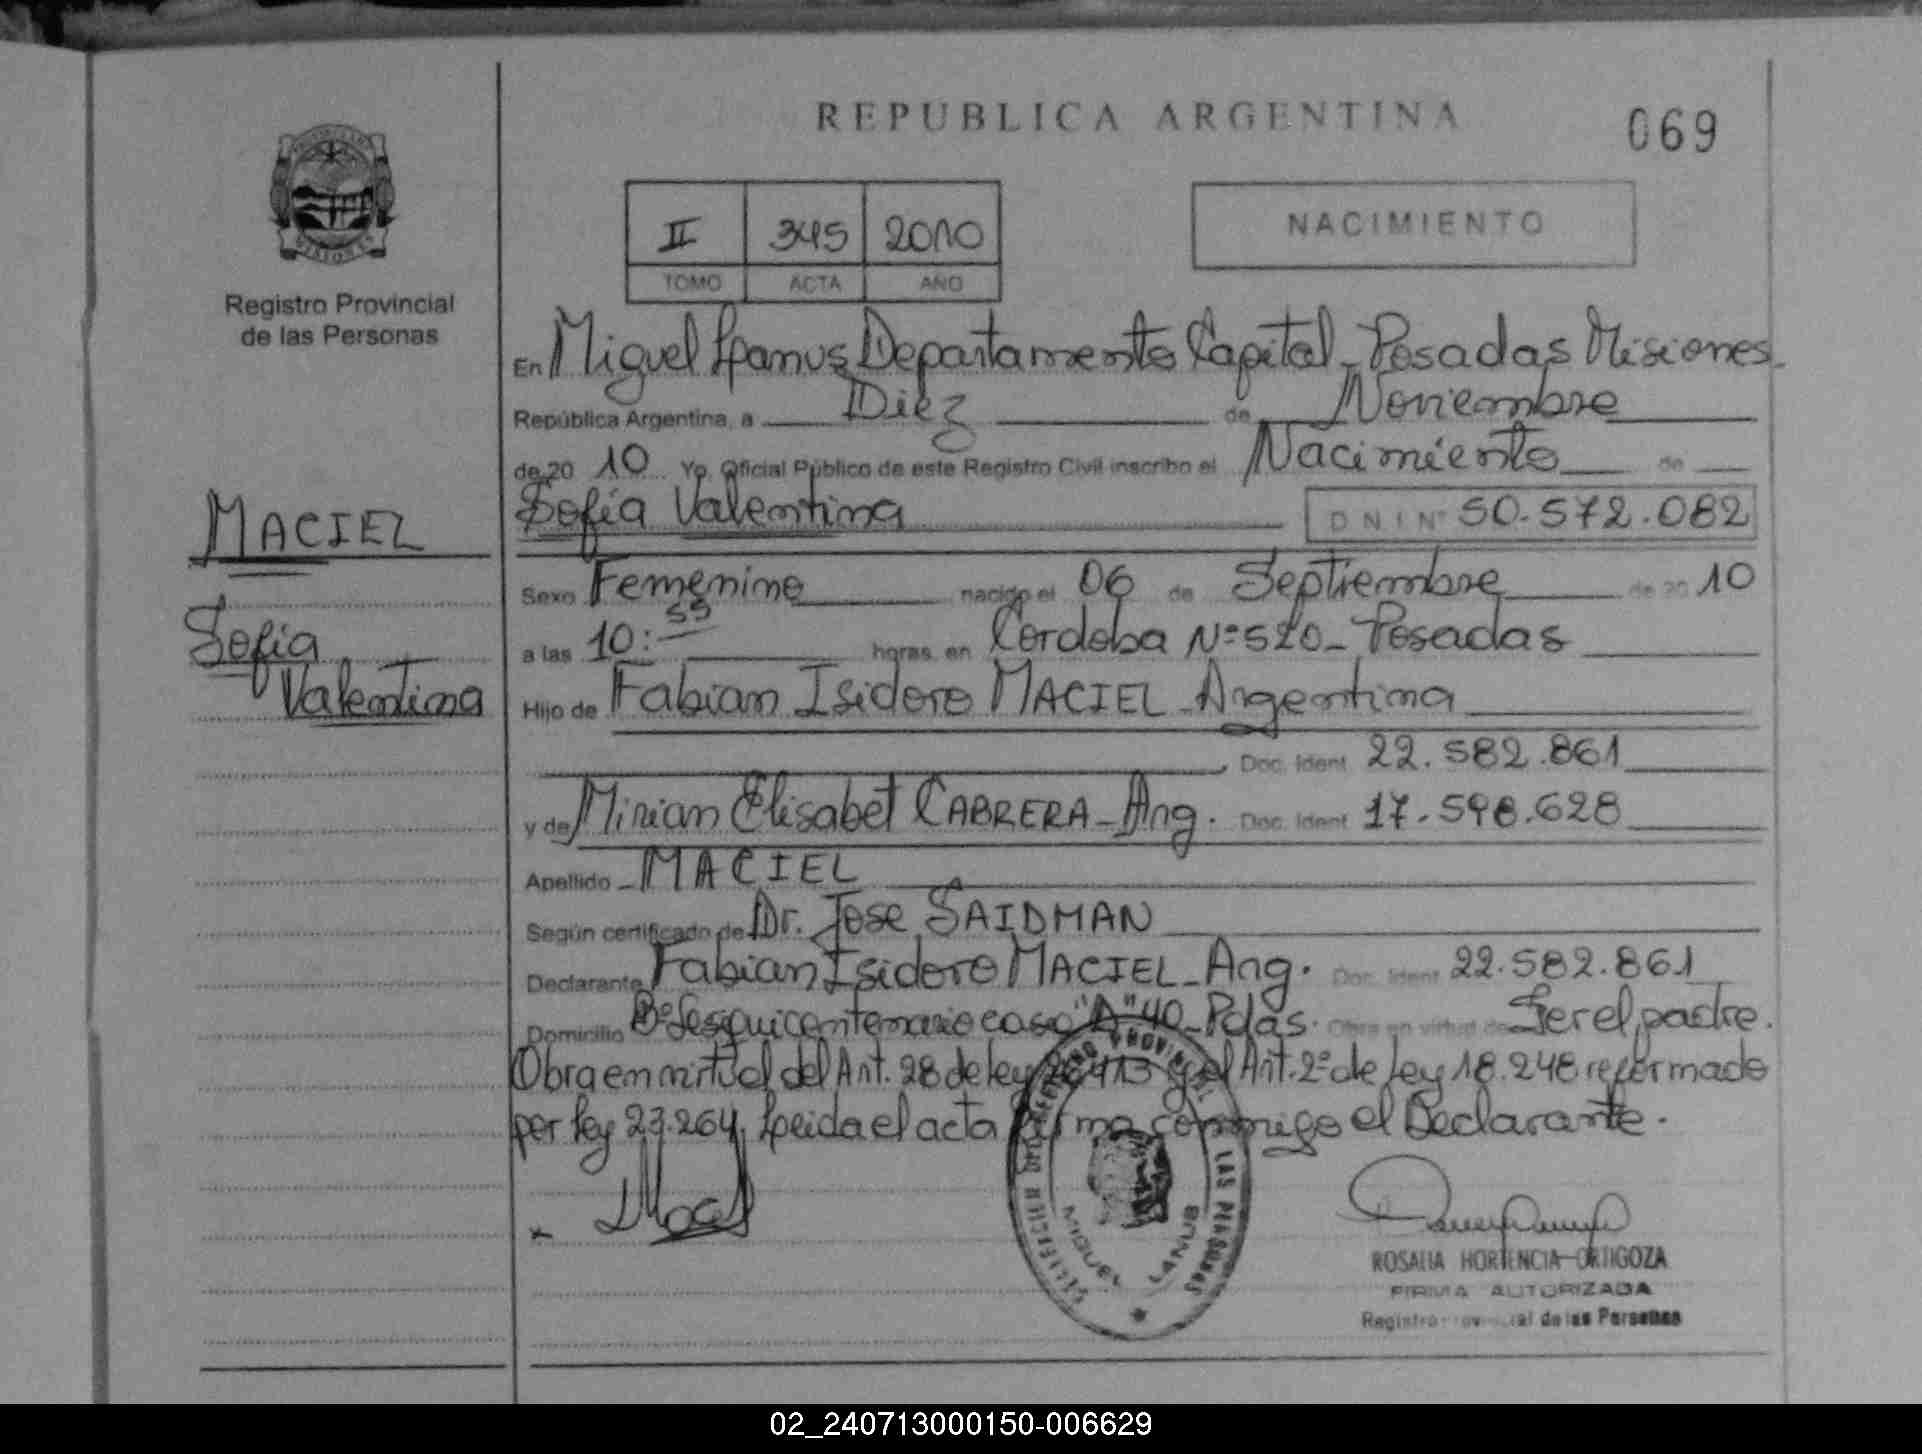 REPUBLICA ARGENTINA
069
II 345 2010
TOMO ACTA AÑO
NACIMIENTO
Registro Provincial
de las Personas
En Miguel Lanus Departamento Capital - Posadas Misiones.
República Argentina, a Diez de Noviembre
de 20 10 Yo, Oficial Público de este Registro Civil inscribo el Nacimiento de
Sofia Valentina D N I Nº 50.572.082
MACIEL
Sofia
Valentina
Sexo Femenino nacido el 06 de Septiembre de 20 10
a las 10:55 horas, en Cordoba Nº 520 - Posadas
Hijo de Fabian Isidoro MACIEL - Argentina
Doc. Ident. 22.582.861
y de Mirian Elisabet CABRERA - Arg. Doc. Ident. 17.598.628
Apellido - MACIEL
Según certificado de Dr. Jose SAIDMAN
Declarante Fabian Isidoro MACIEL - Arg. Doc. Ident 22.582.861
Domicilio Bº Sesquicentenario casa "A" 40 - Pdas. Obra en virtud de Ser el padre.
Obra en virtud del Art. 28 de ley 26.413 y el Art. 2º de Ley 18.248 reformado
por ley 23.264. Leida el acta firma conmigo el Declarante.
PROVINCIAL LAS PERSONAS
MIGUEL LANUS
ROSALIA HORTENCIA ORTIGOZA
FIRMA AUTORIZADA
Registro Provincial de las Personas
02_240713000150-006629